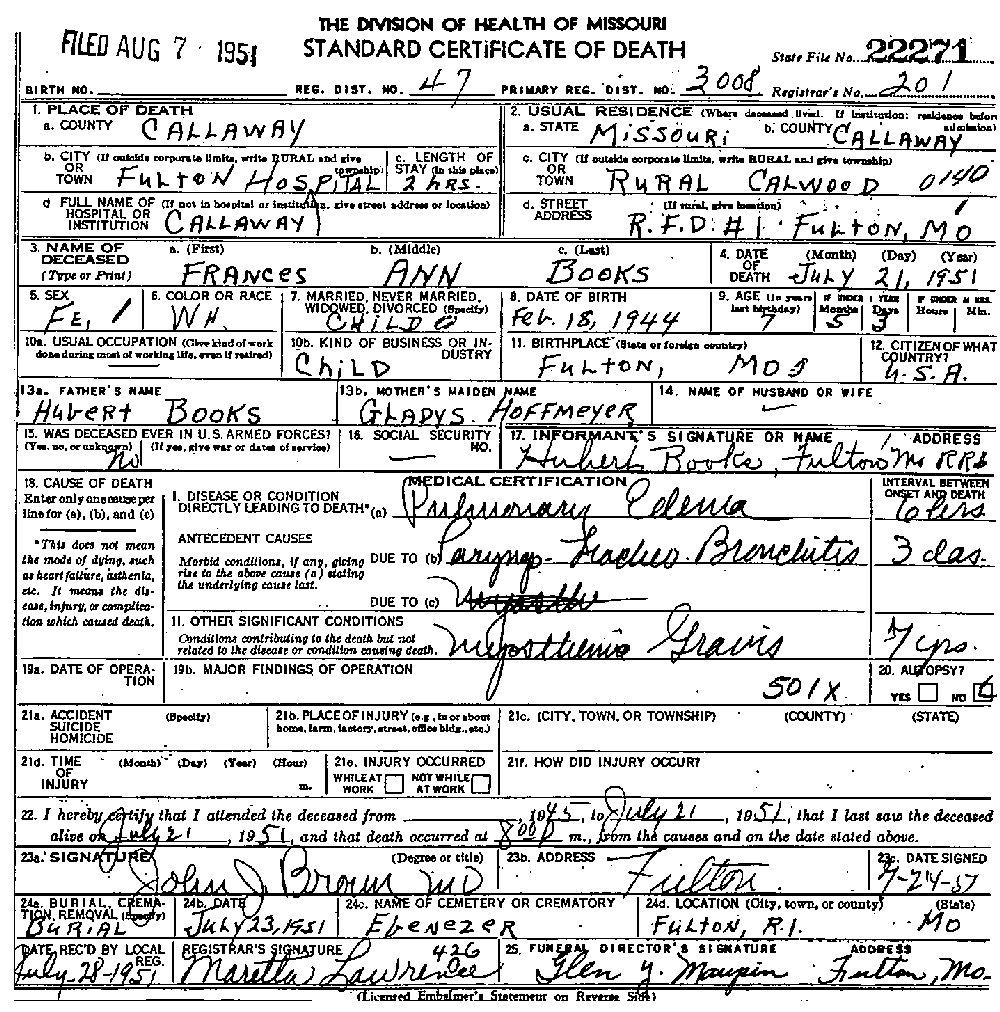 THE DIVISION OF HEALTH OF MISSOURI
FILED AUG 7 1951 STANDARD CERTIFICATE OF DEATH State File No. 22271
BIRTH NO. REG. DIST. NO. 47 PRIMARY REG. DIST. NO. 3008 Registrar's No. 201
1. PLACE OF DEATH 2. USUAL RESIDENCE (Where deceased lived. If institution: residence before admission)
a. COUNTY CALLAWAY a. STATE MISSOURI b. COUNTY CALLAWAY
b. CITY (If outside corporate limits, write RURAL and give township) OR TOWN FULTON HOSPITAL c. LENGTH OF STAY (in this place) 2 hrs. c. CITY (If outside corporate limits, write RURAL and give township) OR TOWN RURAL CALWOOD 0140
d. FULL NAME OF (If not in hospital or institution, give street address or location) HOSPITAL OR INSTITUTION CALLAWAY d. STREET ADDRESS (If rural, give location) R.F.D. #1 FULTON, MO
3. NAME OF DECEASED (Type or Print) a. (First) FRANCES b. (Middle) ANN c. (Last) BOOKS 4. DATE OF DEATH (Month) (Day) (Year) JULY 21, 1951
5. SEX FE, 1 6. COLOR OR RACE WH. 7. MARRIED, NEVER MARRIED, WIDOWED, DIVORCED (Specify) CHILD 0 8. DATE OF BIRTH Feb. 18, 1944 9. AGE (In years last birthday) 7 IF UNDER 1 YEAR Months 5 Days 3 IF UNDER 24 HRS. Hours Min.
10a. USUAL OCCUPATION (Give kind of work done during most of working life, even if retired) — 10b. KIND OF BUSINESS OR INDUSTRY CHILD 11. BIRTHPLACE (State or foreign country) FULTON, MO 12. CITIZEN OF WHAT COUNTRY? U.S.A.
13a. FATHER'S NAME HUBERT BOOKS 13b. MOTHER'S MAIDEN NAME GLADYS HOFFMEYER 14. NAME OF HUSBAND OR WIFE —
15. WAS DECEASED EVER IN U.S. ARMED FORCES? (Yes, no, or unknown) (If yes, give war or dates of service) No 16. SOCIAL SECURITY NO. — 17. INFORMANT'S SIGNATURE OR NAME ADDRESS Hubert Books, Fulton Mo RR1
18. CAUSE OF DEATH MEDICAL CERTIFICATION INTERVAL BETWEEN ONSET AND DEATH
Enter only one cause per line for (a), (b), and (c)
I. DISEASE OR CONDITION DIRECTLY LEADING TO DEATH* (a) Pulmonary Edema 6 hrs
*This does not mean the mode of dying, such as heart failure, asthenia, etc. It means the disease, injury, or complication which caused death.
ANTECEDENT CAUSES
Morbid conditions, if any, giving rise to the above cause (a) stating the underlying cause last.
DUE TO (b) Laryngo-Tracheo-Bronchitis 3 das.
DUE TO (c)
II. OTHER SIGNIFICANT CONDITIONS
Conditions contributing to the death but not related to the disease or condition causing death. Myasthenia Gravis 7 yrs.
19a. DATE OF OPERATION 19b. MAJOR FINDINGS OF OPERATION 501X 20. AUTOPSY? YES NO
21a. ACCIDENT SUICIDE HOMICIDE (Specify) 21b. PLACE OF INJURY (e.g., in or about home, farm, factory, street, office bldg., etc.) 21c. (CITY, TOWN, OR TOWNSHIP) (COUNTY) (STATE)
21d. TIME OF INJURY (Month) (Day) (Year) (Hour) m. 21e. INJURY OCCURRED WHILE AT WORK NOT WHILE AT WORK 21f. HOW DID INJURY OCCUR?
22. I hereby certify that I attended the deceased from , 1945, to July 21, 1951, that I last saw the deceased
alive on July 21, 1951, and that death occurred at 8:00 P m., from the causes and on the date stated above.
23a. SIGNATURE (Degree or title) John J Brown MD 23b. ADDRESS Fulton 23c. DATE SIGNED 7-24-51
24a. BURIAL, CREMATION, REMOVAL (Specify) BURIAL 24b. DATE July 23, 1951 24c. NAME OF CEMETERY OR CREMATORY EBENEZER 24d. LOCATION (City, town, or county) (State) FULTON, R.1. MO
DATE REC'D BY LOCAL REG. July-28-1951 REGISTRAR'S SIGNATURE 426 Maretta Lawrence 25. FUNERAL DIRECTOR'S SIGNATURE ADDRESS Glen Y. Maupin Fulton, Mo.
(Licensed Embalmer's Statement on Reverse Side)